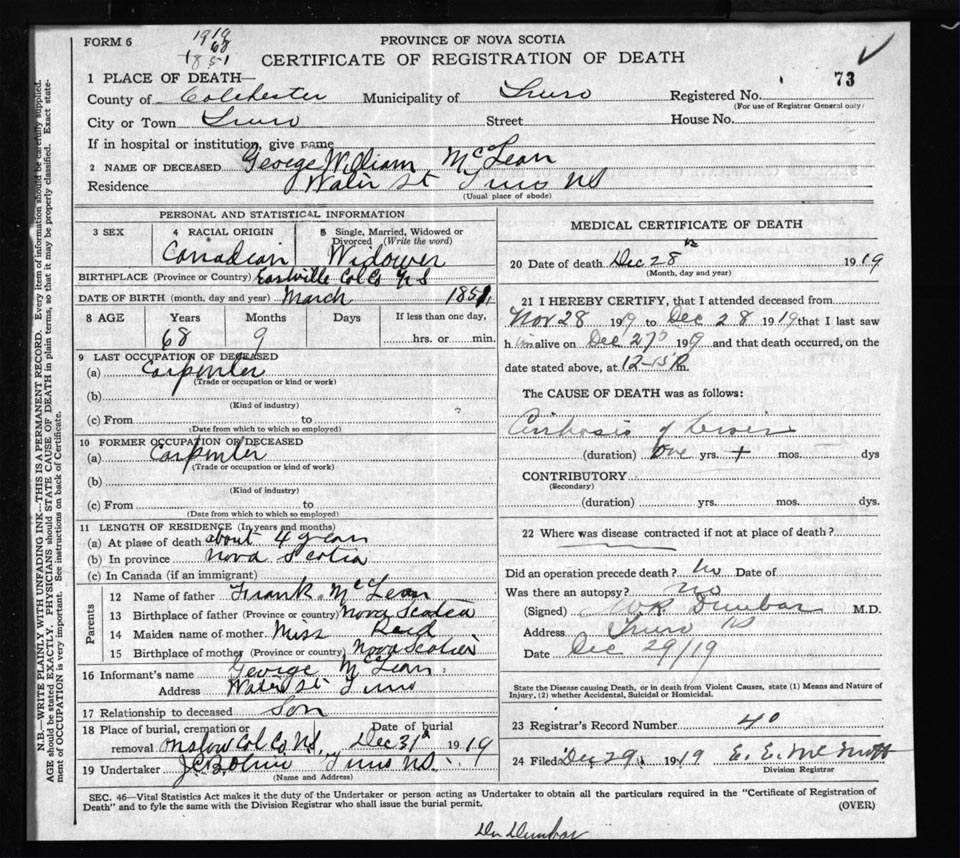 FORM 6
1919
68
1851
PROVINCE OF NOVA SCOTIA
CERTIFICATE OF REGISTRATION OF DEATH
73
1 PLACE OF DEATH—
County of Colchester Municipality of Truro Registered No.
(For use of Registrar General only)
City or Town Truro Street House No.
If in hospital or institution, give name
2 NAME OF DECEASED George William McLean
Residence Water St Truro NS
(Usual place of abode)
PERSONAL AND STATISTICAL INFORMATION
3 SEX 4 RACIAL ORIGIN 5 Single, Married, Widowed or Divorced (Write the word)
Canadian Widower
BIRTHPLACE (Province or Country) Eastville Col Co NS
DATE OF BIRTH (month, day and year) March 1851
8 AGE Years Months Days If less than one day,
68 9 hrs. or min.
9 LAST OCCUPATION OF DECEASED
(a) Carpenter
(Trade or occupation or kind or work)
(b)
(Kind of industry)
(c) From to
(Date from which to which so employed)
10 FORMER OCCUPATION OF DECEASED
(a) Carpenter
(Trade or occupation or kind or work)
(b)
(Kind of industry)
(c) From to
(Date from which to which so employed)
11 LENGTH OF RESIDENCE (In years and months)
(a) At place of death about 4 years
(b) In province Nova Scotia
(c) In Canada (if an immigrant)
Parents
12 Name of father Frank McLean
13 Birthplace of father (Province or country) Nova Scotia
14 Maiden name of mother Miss Reid
15 Birthplace of mother (Province or country) Nova Scotia
16 Informant's name George McLean
Address Water St Truro
17 Relationship to deceased Son
18 Place of burial, cremation or removal Onslow Col Co NS, Date of burial Dec 31 1919
19 Undertaker Truro NS.
(Name and Address)
MEDICAL CERTIFICATE OF DEATH
20 Date of death Dec 28 1919
(Month, day and year)
21 I HEREBY CERTIFY, that I attended deceased from
Nov 28 1919 to Dec 28 1919 that I last saw
him alive on Dec 27 1919 and that death occurred, on the
date stated above, at 12-15 P.m.
The CAUSE OF DEATH was as follows:
Cirrhosis of Liver
(duration) One yrs. + mos. dys
CONTRIBUTORY
(Secondary)
(duration) yrs. mos. dys.
22 Where was disease contracted if not at place of death?
Did an operation precede death? No Date of
Was there an autopsy? No
(Signed) Dunbar M.D.
Address Truro NS
Date Dec 29/19
State the Disease causing Death, or in death from Violent Causes, state (1) Means and Nature of
Injury, (2) whether Accidental, Suicidal or Homicidal.
23 Registrar's Record Number 40
24 Filed Dec 29 1919
Division Registrar
SEC. 46—Vital Statistics Act makes it the duty of the Undertaker or person acting as Undertaker to obtain all the particulars required in the "Certificate of Registration of
Death" and to fyle the same with the Division Registrar who shall issue the burial permit. (OVER)
Dr Dunbar
N.B.—WRITE PLAINLY WITH UNFADING INK—THIS IS A PERMANENT RECORD. Every item of information should be carefully supplied.
AGE should be stated EXACTLY. PHYSICIANS should STATE CAUSE OF DEATH in plain terms, so that it may be properly classified. Exact state-
ment of OCCUPATION is very important. See instructions on back of Certificate.